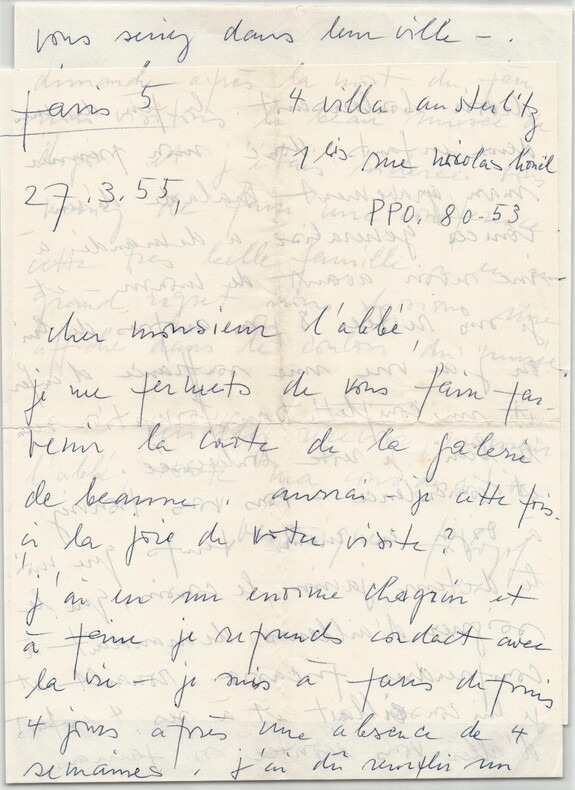 vous seriez dans leur ville -.
paris 5
4 villa austerlitz
1 bis rue nicolas houël
27.3.55,
PPO. 80-53
cher monsieur l'abbé,
je me permets de vous faire par-
venir la carte de la galerie
de beaune. aurai-je cette fois-
ci la joie de votre visite?
j'ai eu un enorme chagrin et
à peine je reprends contact avec
la vie - je suis à paris depuis
4 jours après une absence de 4
semaines. j'ai dû remplir un